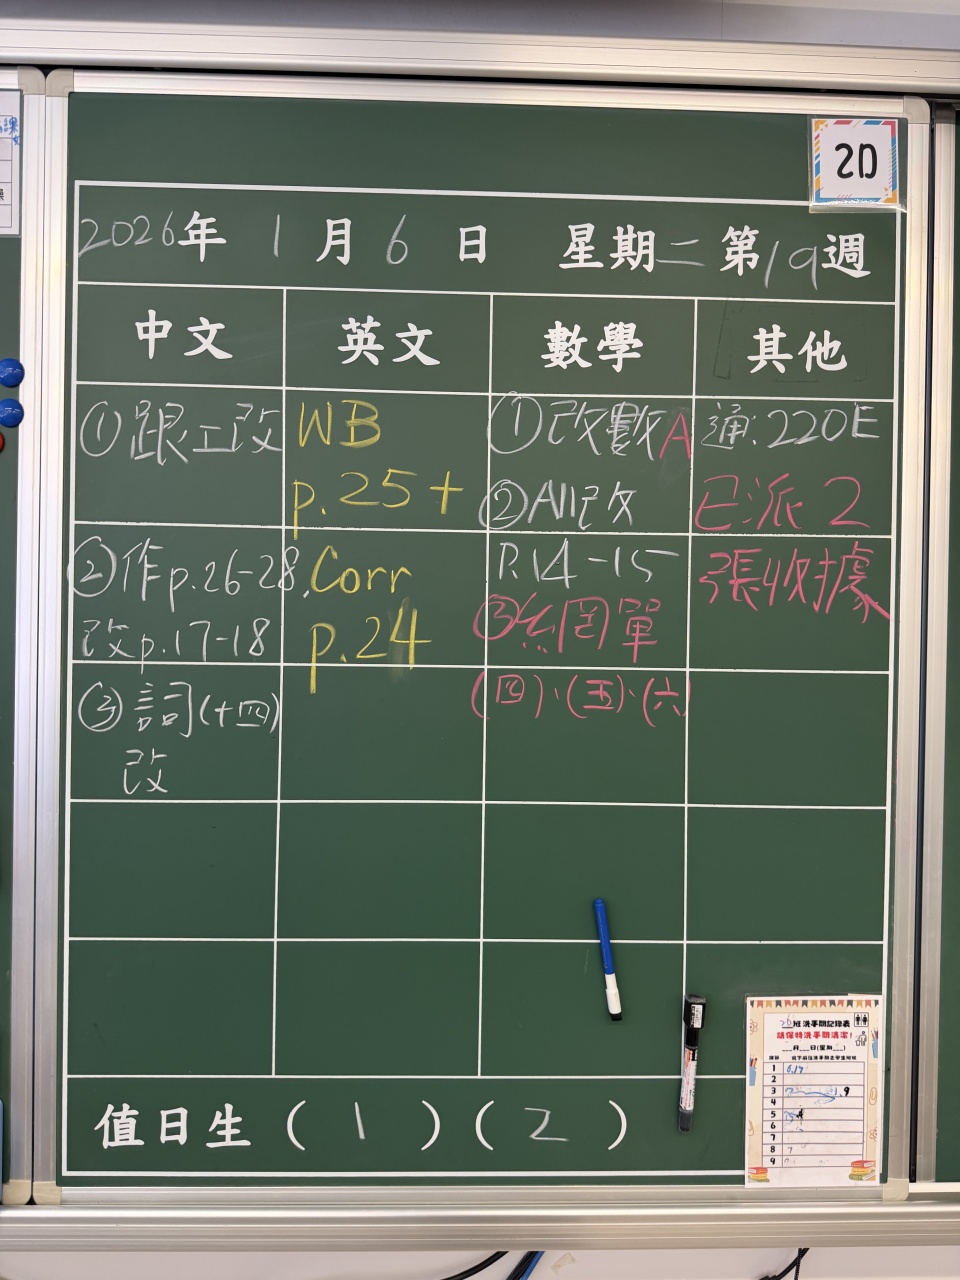 2D
2026年 1月 6日 星期二 第19週
中文 英文 數學 其他
①跟工改
②作p.26-28,
改p.17-18
③詞(十四)
改
WB
p.25+
Corr
p.24
①改數A
②All改
P.14-15
③網單
(四)、(五)、(六)
通:220E
已派2
張收據
值日生 ( 1 ) ( 2 )
班洗手間記錄表
請保持洗手間清潔!
___月___日(星期___)
1 6,17
2
3
4
5
6
7
8 7
9